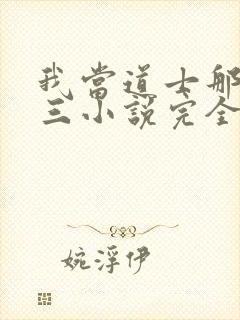 我當道士那
三小說完全
婉浮伊